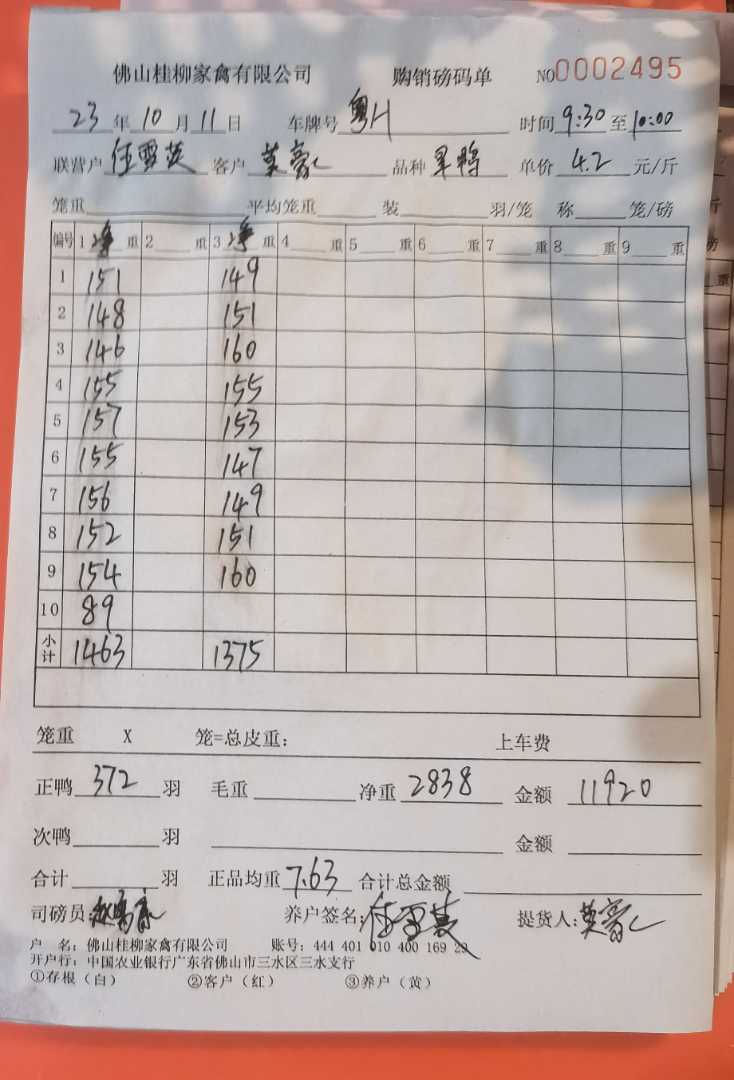 佛山桂柳家禽有限公司 购销磅码单 NO0002495
23年10月11日 车牌号 粤H 时间 9:30 至 10:00
联营户 任雪英 客户 莫豪 品种 旱鸭 单价 4.2 元/斤
笼重 平均笼重 装 羽/笼 称 笼/磅
编号 1 净 重 2 重 3 净 重 4 重 5 重 6 重 7 重 8 重 9 重
1 151 149
2 148 151
3 146 160
4 155 155
5 157 153
6 155 147
7 156 149
8 152 151
9 154 160
10 89
小计 1463 1375
笼重 X 笼=总皮重: 上车费
正鸭 372 羽 毛重 净重 2838 金额 11920
次鸭 羽 金额
合计 羽 正品均重 7.63 合计总金额
司磅员: 养户签名: 任雪英 提货人: 莫豪
户 名: 佛山桂柳家禽有限公司 账号: 444 401 010 400 169 29
开户行: 中国农业银行广东省佛山市三水区三水支行
①存根（白） ②客户（红） ③养户（黄）